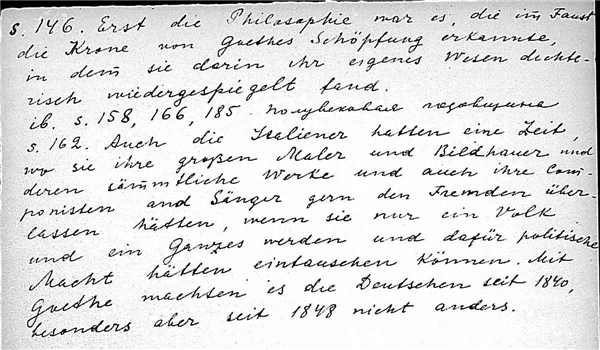 S. 146. Erst die Philosophie war es, die im Faust
die Krone von Goethes Schöpfung erkannte,
in dem sie darin ihr eigenes Wesen dichte-
risch wiedergespiegelt fand.
ib. S. 158, 166, 185 - полувековая годовщина
S. 162. Auch die Italiener hatten eine Zeit,
wo sie ihre großen Maler und Bildhauer und
deren sämmtliche Werke und auch ihre Com-
ponisten and Sänger gern den Fremden über-
lassen hätten, wenn sie nur ein Volk
und ein Ganzes werden und dafür politische
Macht hätten eintauschen können. Mit
Goethe machten es die Deutschen seit 1840,
besonders aber seit 1848 nicht anders.